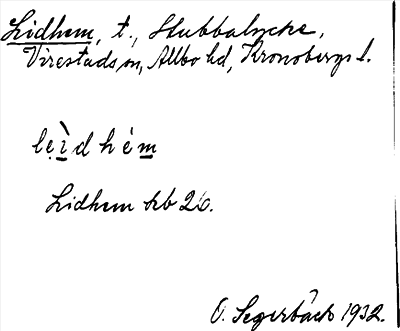 Lidhem, t., Stubbalycke,
Virestads sn, Allbo hd, Kronobergs l.
lẹìd hém
Lidhem kb 26.
O. Segerbäck 1932.